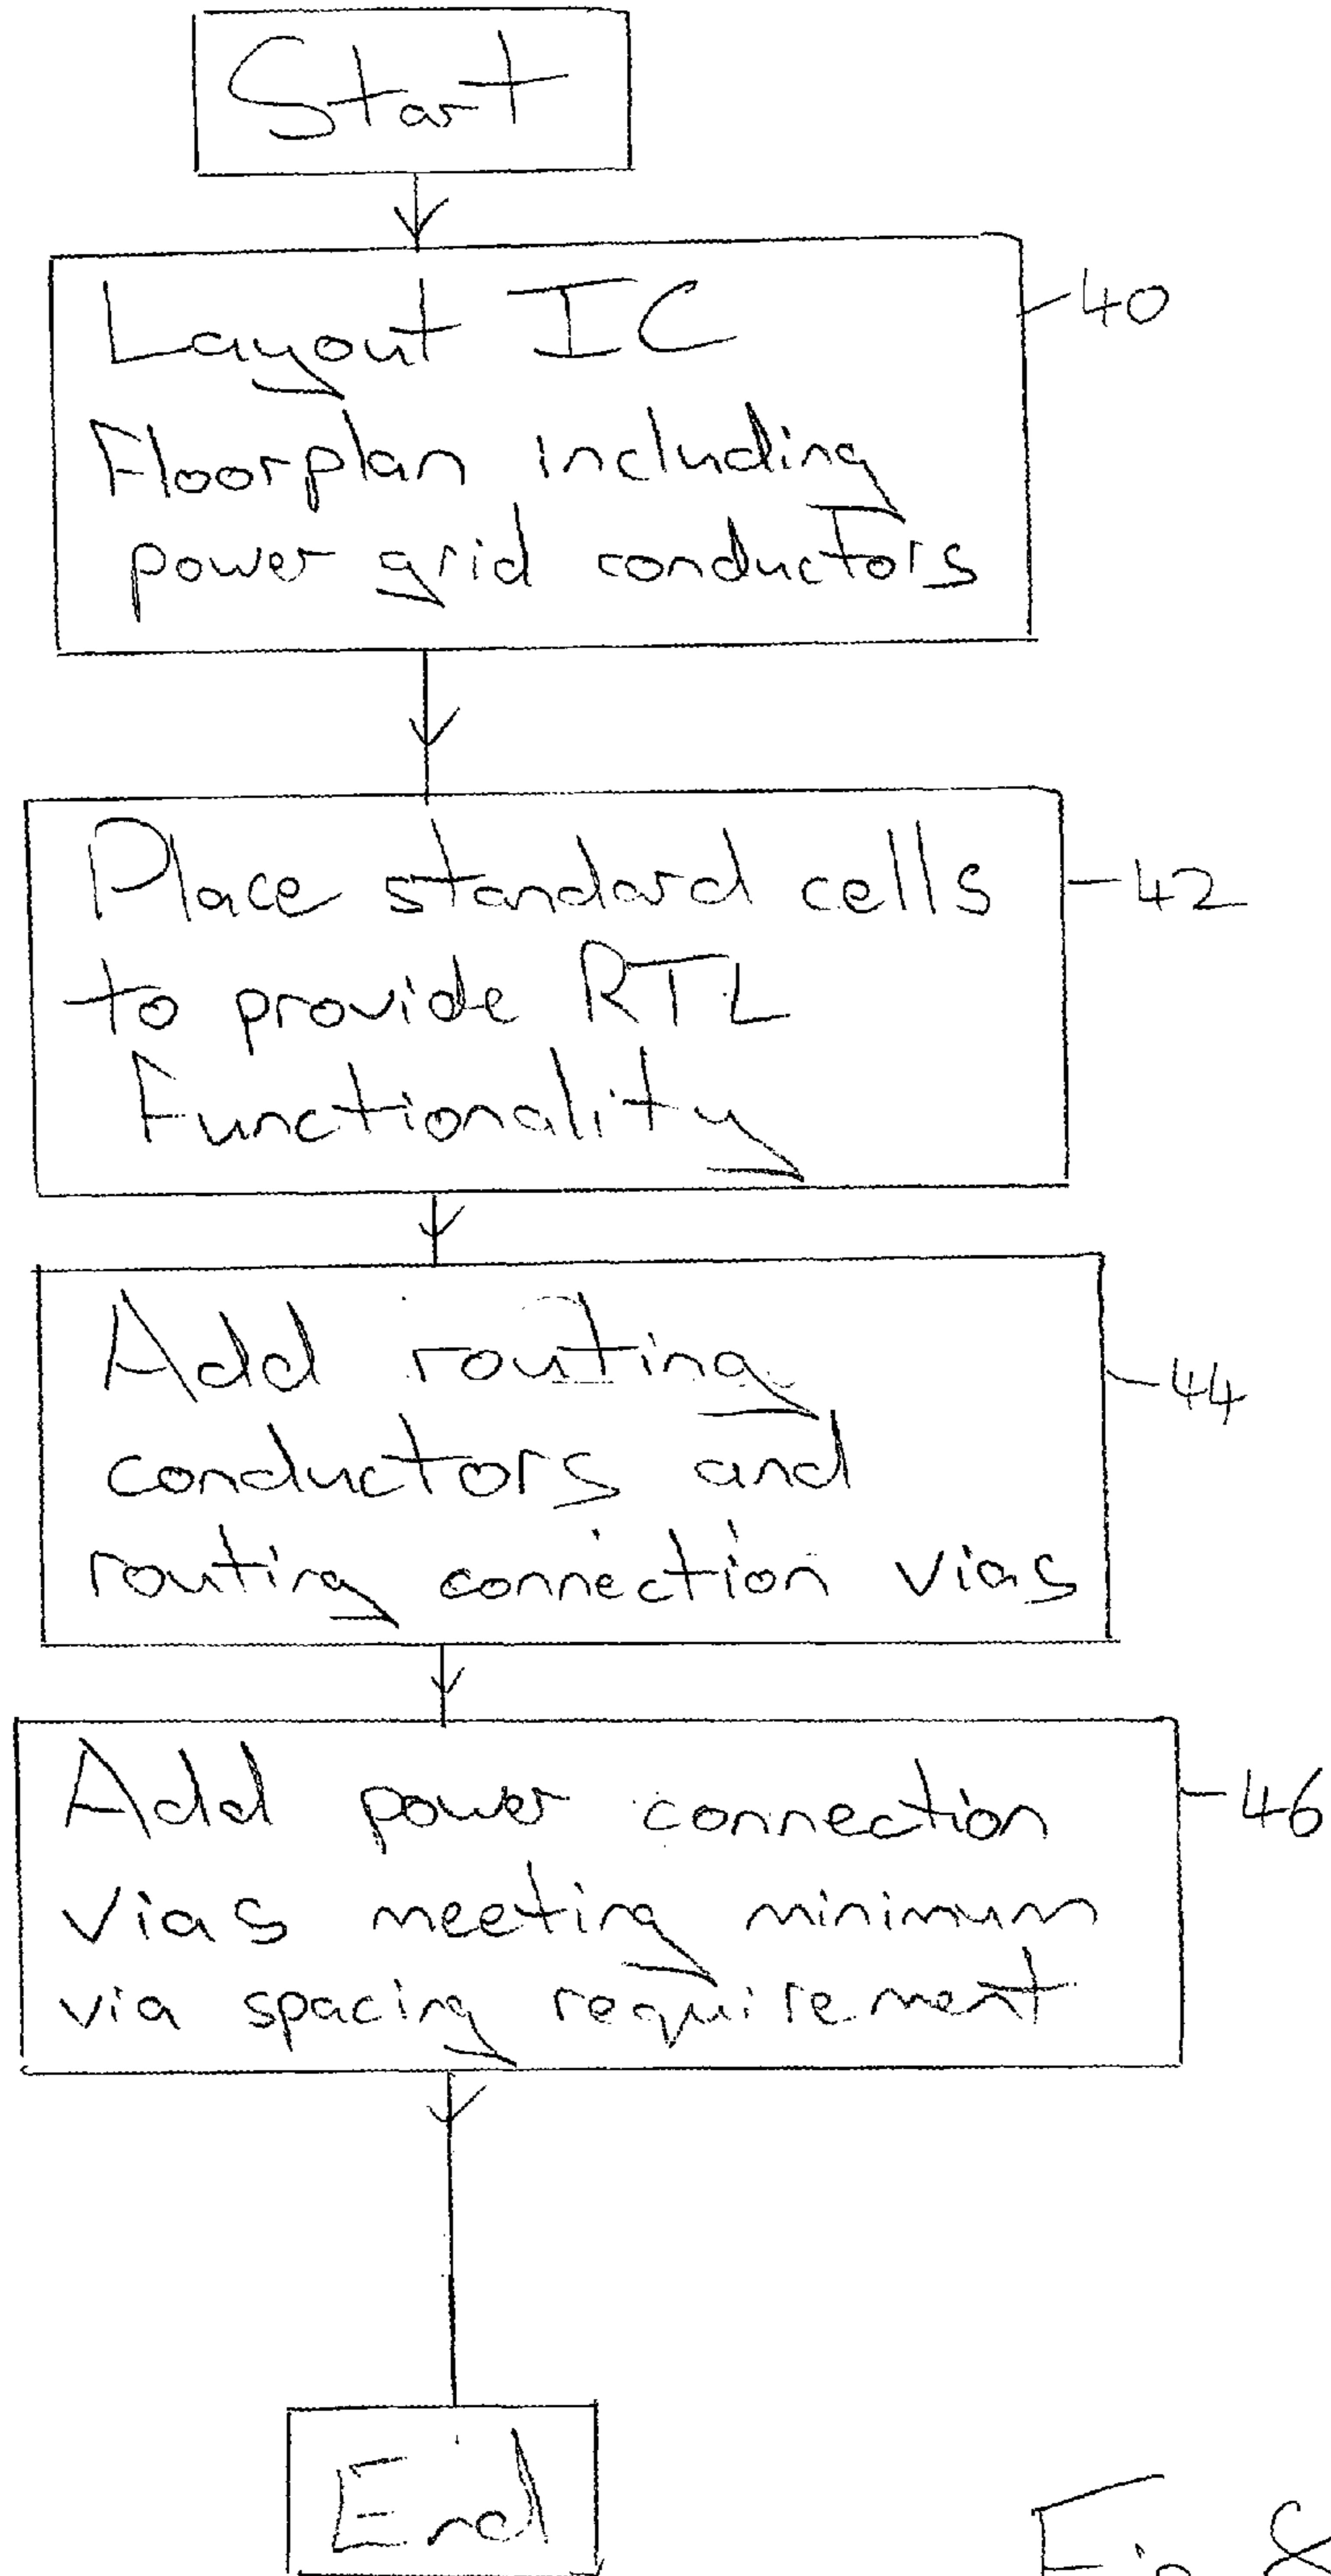 Start
Layout IC
Floorplan including
power grid conductors
40
Place standard cells
to provide RTL
Functionality
42
Add routing
conductors and
routing connection vias
44
Add power connection
vias meeting minimum
via spacing requirement
46
End
Fig 8